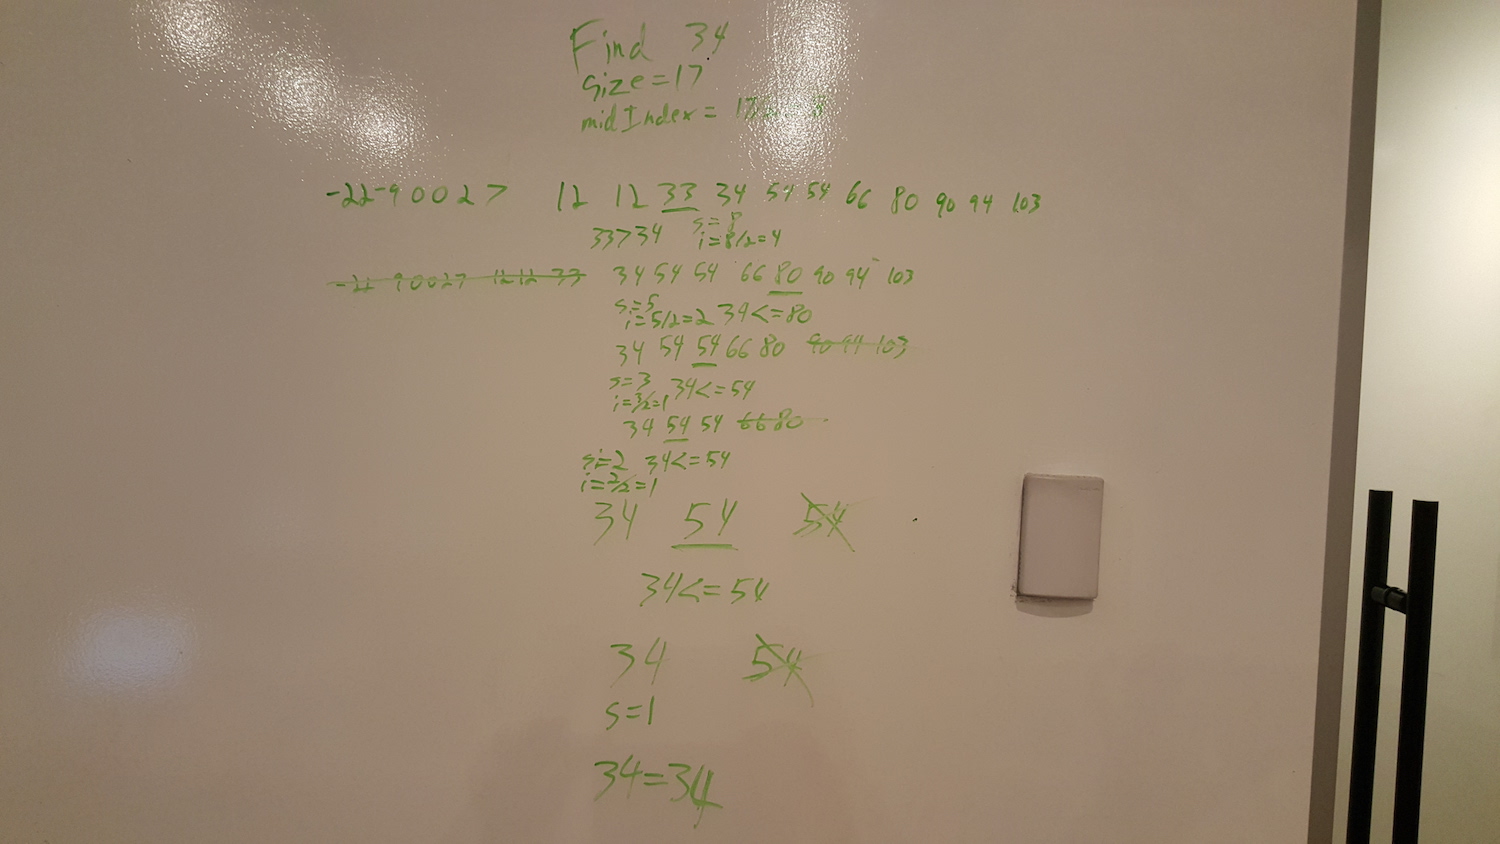 Find 34
size=17
midIndex = 17/2 = 8
-22 -9 0 0 2 7 12 12 33 34 54 54 66 80 90 94 103
33>34 s=8
i=8/2=4
-22 9 0 0 2 7 12 12 33 34 54 54 66 80 90 94 103
s=5
i=5/2=2 34<=80
34 54 54 66 80 90 94 103
s=3 34<=54
i=3/2=1
34 54 54 66 80
si=2 34<=54
i=2/2=1
34 54 54
34<=54
34 54
s=1
34=34